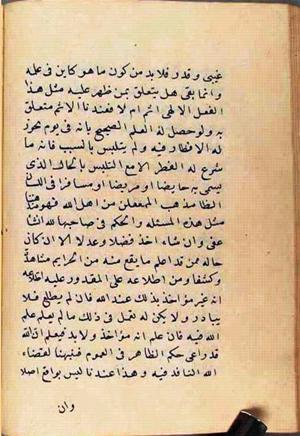 غيبي وقدر فلا بد من كون ما هو كاين في علمه
وانما بقي هل يتعلق بمن ظهر عليه مثل هذا
الفعل الالهي اثم ام لا فعندنا الاثم متعلق
به ولو حصل له العلم الصحيح بانه في يوم يجوز
له الافطار فيه ولم يتلبس بالسبب فانه ما
شرع له الفطر الا مع التلبس بالحال الذي
يسمى به حايضا او مريضا او مسافرا في اللسان
الظاهر مذهب المحققين من اهل الله فهو
مثل هذه المسئله والحكم في صاحبها لله ان شا
عفى وان شاء اخذ فضلا وعدلا الا ان كان
حاله ممن قد اعلم ما يقع منه من الجرايم مشاهدة
وكشفا ومن اطلاعه على المقدور عليه
انه غير مؤاخذ بذلك عند الله فان لم يطلع فلا
يبادر ولا يكن له تعمل في ذلك ما لم يعلم علم
الله فيه فان علم انه مؤاخذ ولا بد فيعلم ان الله
قد راعى حكم الظاهر في العموم فنبهنا لقضاء
الله النافذ فيه وهذا عندنا ليس بواقع اصلا
وان